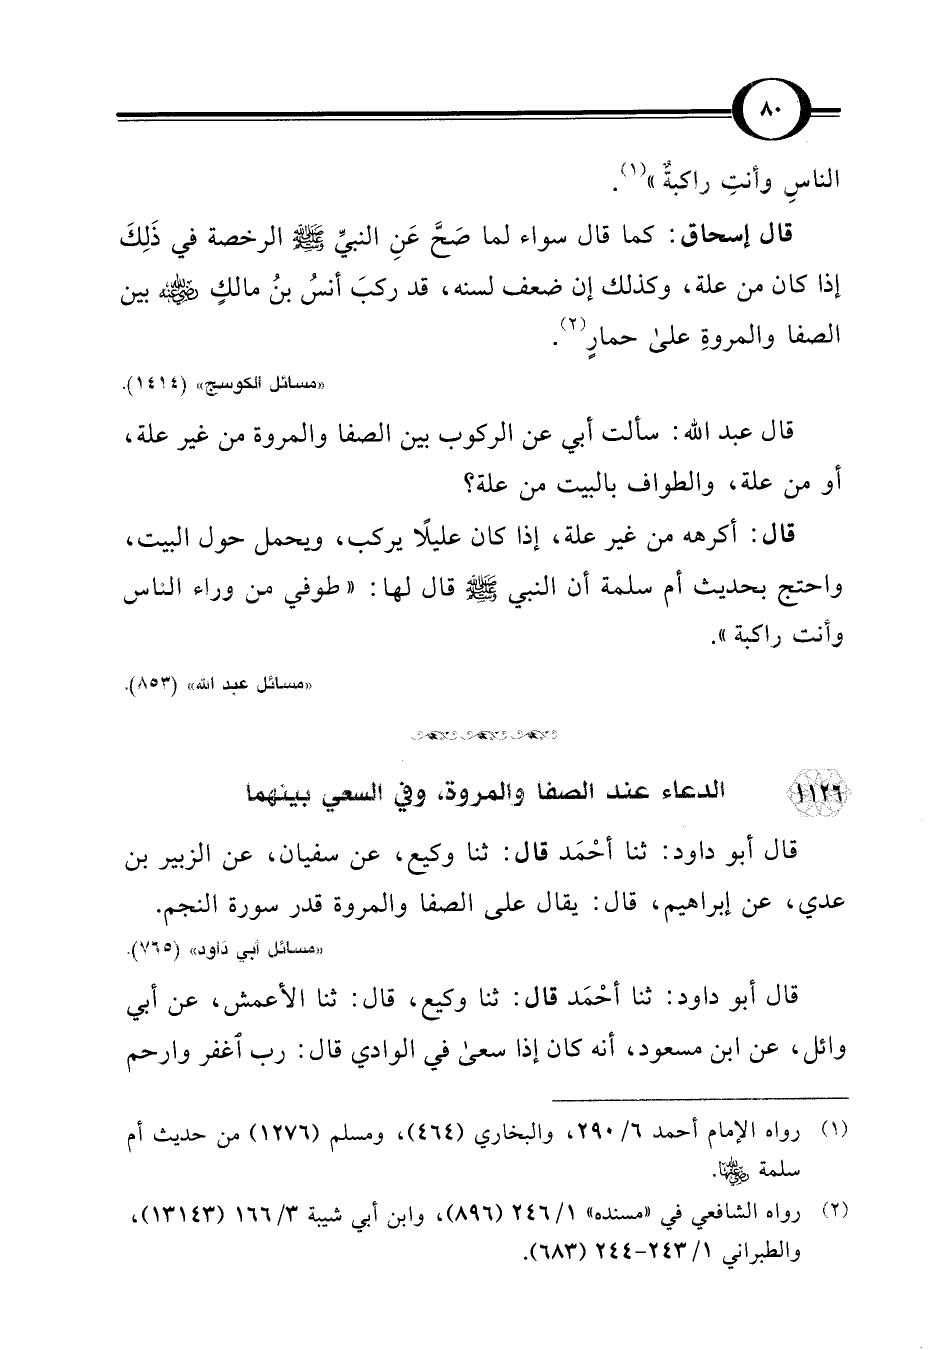 ٨٠
الناسِ وأنتِ راكبةٌ»(١).
قال إسحاق: كما قال سواء لما صَحَّ عَنِ النبيِّ ﷺ الرخصة في ذَلِكَ
إذا كان من علة، وكذلك إن ضعف لسنه، قد ركبَ أنسُ بنُ مالكٍ رضي الله عنه بين
الصفا والمروةِ علىٰ حمارٍ(٢).
«مسائل الكوسج» (١٤١٤).
قال عبد الله: سألت أبي عن الركوب بين الصفا والمروة من غير علة،
أو من علة، والطواف بالبيت من علة؟
قال: أكرهه من غير علة، إذا كان عليلًا يركب، ويحمل حول البيت،
واحتج بحديث أم سلمة أن النبي ﷺ قال لها: «طوفي من وراء الناس
وأنت راكبة».
«مسائل عبد الله» (٨٥٣).
١١٢٦ الدعاء عند الصفا والمروة، وفي السعي بينهما
قال أبو داود: ثنا أحْمَد قال: ثنا وكيع، عن سفيان، عن الزبير بن
عدي، عن إبراهيم، قال: يقال على الصفا والمروة قدر سورة النجم.
«مسائل أبي داود» (٧٦٥).
قال أبو داود: ثنا أحْمَد قال: ثنا وكيع، قال: ثنا الأعمش، عن أبي
وائل، عن ابن مسعود، أنه كان إذا سعىٰ في الوادي قال: رب ٱغفر وارحم
(١) رواه الإمام أحمد ٦/ ٢٩٠، والبخاري (٤٦٤)، ومسلم (١٢٧٦) من حديث أم
سلمة رضي الله عنها.
(٢) رواه الشافعي في «مسنده» ١/ ٢٤٦ (٨٩٦)، وابن أبي شيبة ٣/ ١٦٦ (١٣١٤٣)،
والطبراني ١/ ٢٤٣-٢٤٤ (٦٨٣).